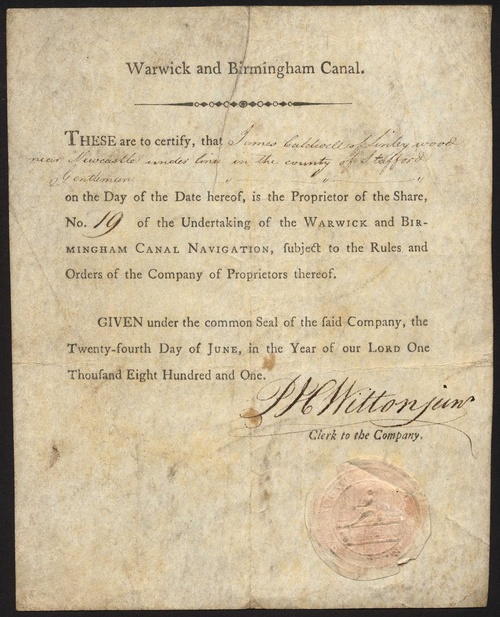 Warwick and Birmingham Canal.
THESE are to certify, that James Caldwell of Linley wood
near Newcastle under line in the county of Stafford
Gentleman " " "
on the Day of the Date hereof, is the Proprietor of the Share,
No. 19 of the Undertaking of the WARWICK and BIR-
MINGHAM CANAL NAVIGATION, subject to the Rules and
Orders of the Company of Proprietors thereof.
GIVEN under the common Seal of the ſaid Company, the
Twenty-fourth Day of JUNE, in the Year of our LORD One
Thouſand Eight Hundred and One.
P H Witton junr
Clerk to the Company.